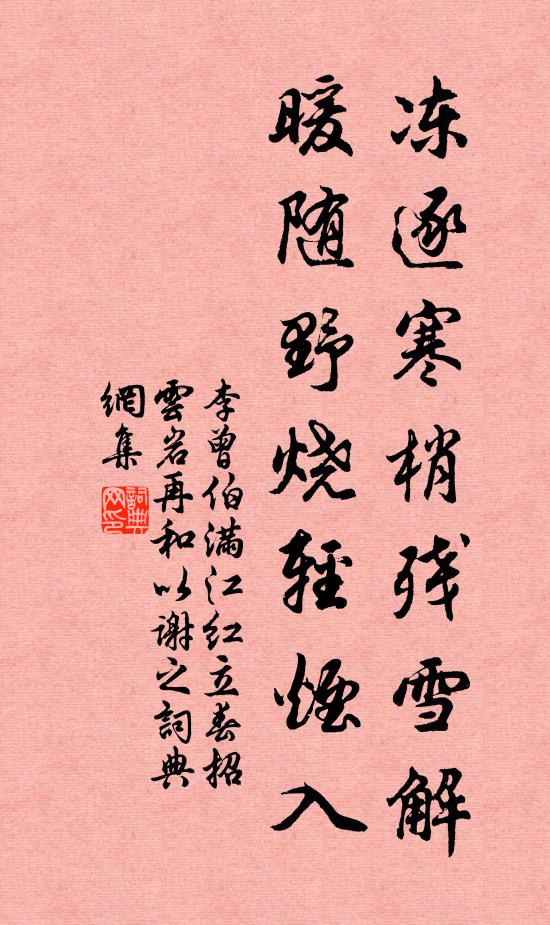 冻逐寒梢残雪解
暖随野烧轻煙入
李曾伯满江红立春招
雲岩再和以谢之詞典
網集
詞典
网印